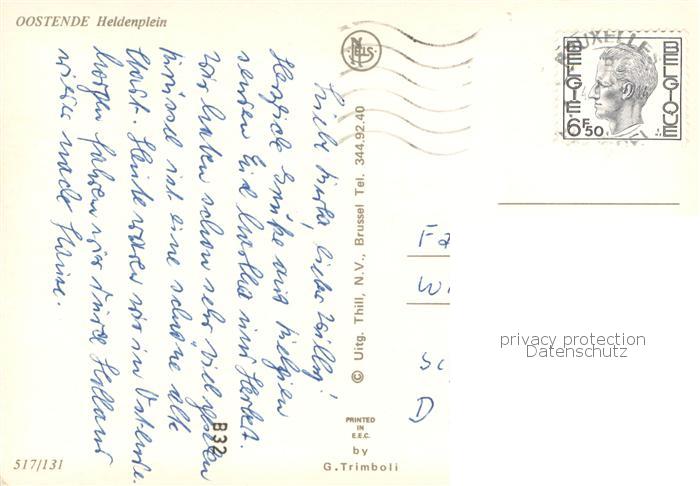 OOSTENDE Heldenplein
Liebe liebe Willy!
Herzliche Grüße aus Belgien
senden Euch und Herbert.
Wir haben schon sehr viel gesehen
Brüssel ist eine schöne alte
Stadt. Heute waren wir in Ostende.
Morgen fahren wir durch Holland
wieder nach Hause.
NELS
© Uitg. Thill, N.V., Brussel Tel. 344.92.40
B32
PRINTED
IN
E.E.C.
by
G. Trimboli
517/131
BRUXELLES
BELGIE BELGIQUE
6F50
Fa
Wi
Sc
D
privacy protection
Datenschutz